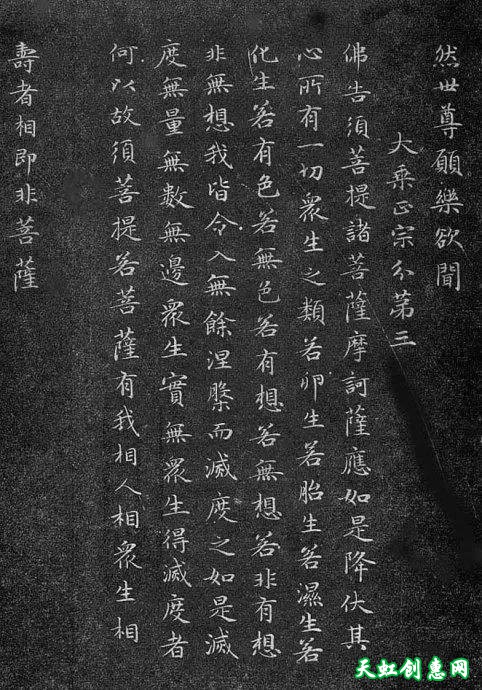 然世尊願樂欲聞
大乘正宗分第三
佛告須菩提諸菩薩摩訶薩應如是降伏其
心所有一切眾生之類若卵生若胎生若濕生若
化生若有色若無色若有想若無想若非有想
非無想我皆令入無餘涅槃而滅度之如是滅
度無量無數無邊眾生實無眾生得滅度者
何以故須菩提若菩薩有我相人相眾生相
壽者相即非菩薩
天虹创惠网